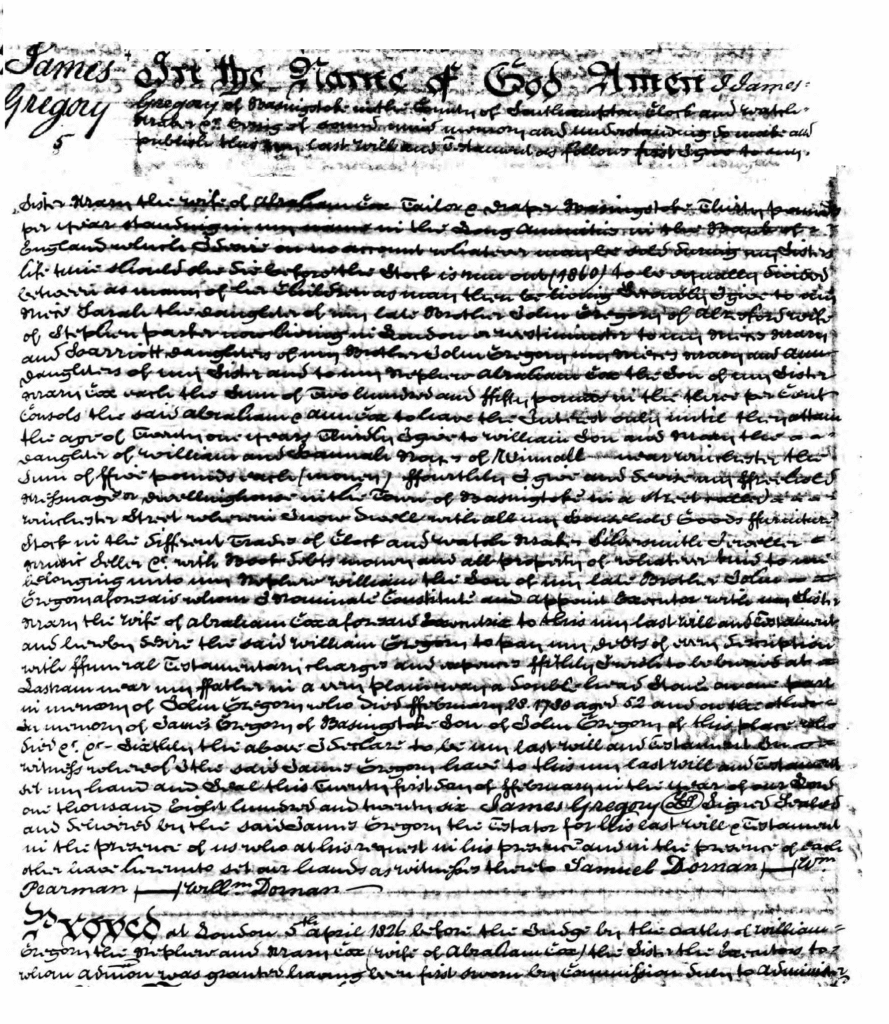 James
Gregory
5
In the Name of God Amen I James
Gregory of Basingstoke in the County of Southampton Clock and Watch
Maker &c. being of sound mind memory and understanding do make and
publish this my last will and Testament as follows first I give to my
Sister Mary the wife of Abraham Cox Tailor & Draper Basingstoke Thirty pounds
per year standing in my name in the Long Annuities in the Bank of
England which I desire on no account whatever may be sold during my Sisters
life time should she die before the Stock is run out (1860) to be equally divided
between as many of her Children as may then be living Secondly I give to my
Niece Sarah the daughter of my late Brother John Gregory of Alresford wife
of Stephen parker now living in London or westminster to my Nieces Mary
and Harriott daughters of my Brother John Gregory my Nieces Mary and Ann
daughters of my Sister and to my Nephew Abraham Cox the Son of my Sister
Mary Cox each the Sum of Two hundred and ffifty pounds in the three per Cent
Consols the said Abraham & Ann Cox to have the Interest only until they attain
the age of Twenty one years Thirdly I give to William Son and Mary the
daughter of William and Hannah of Winnall near winchester the
Sum of ffive pounds each (money) ffourthly I give and devise my ffreehold
Messuage or dwellinghouse in the Town of Basingstoke in a street called
winchester Street wherein I now dwell with all my household Goods ffurniture
Stock in the different Trades of Clock and watch Maker Silversmith Jeweller
Music Seller &c. with Book debts money and all property of whatever kind to me
belonging unto my Nephew William the Son of my late Brother John
Gregory aforesaid whom I Nominate Constitute and appoint Executor with my Sister
Mary the wife of Abraham Cox aforesaid Executrix to this my last will and Testament
and hereby desire the said William Gregory to pay my debts of every description
with ffuneral Testamentary charges and expences ffifthly I wish to be buried at
near my ffather in a very plain way a double head Stone on one part
in memory of John Gregory who died ffebruary 28 1780 aged 52 and on the other
In memory of James Gregory of Basingstoke Son of John Gregory of this place who
died &c. &c. Sixthly the above I declare to be my last will and Testament In
witness whereof I the said James Gregory have to this my last will and Testament
set my hand and Seal this Twenty first day of ffebruary in the year of our Lord
one thousand Eight hundred and twenty six James Gregory (LS) Signed Sealed
and delivered by the said James Gregory the Testator for his last will & Testament
in the presence of us who at his request in his presence and in the presence of each
other have hereunto set our hands as witnesses thereto Samuel Dornan — Wm
Pearman — Willm Dornan —
Proved at London 5th April 1826 before the Judge by the oaths of William
Gregory the Nephew and Mary Cox (wife of Abraham Cox) the Sister the Executors to
whom admon was granted having been first sworn by Commission duly to Administer